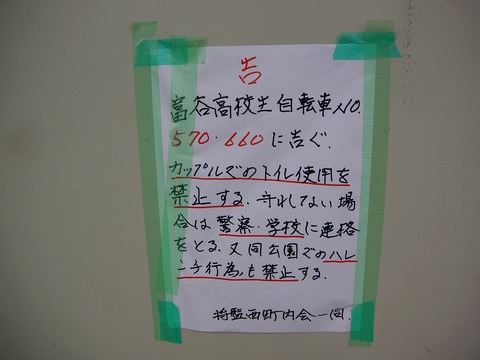 告
富谷高校生自転車NO.
570・660に告ぐ.
カップルでのトイレ使用を
禁止する. 守れてない場
合は警察・学校に連絡
をとる. 又同公園でのハレ
ンチ行為も禁止する.
将監西町内会一同.